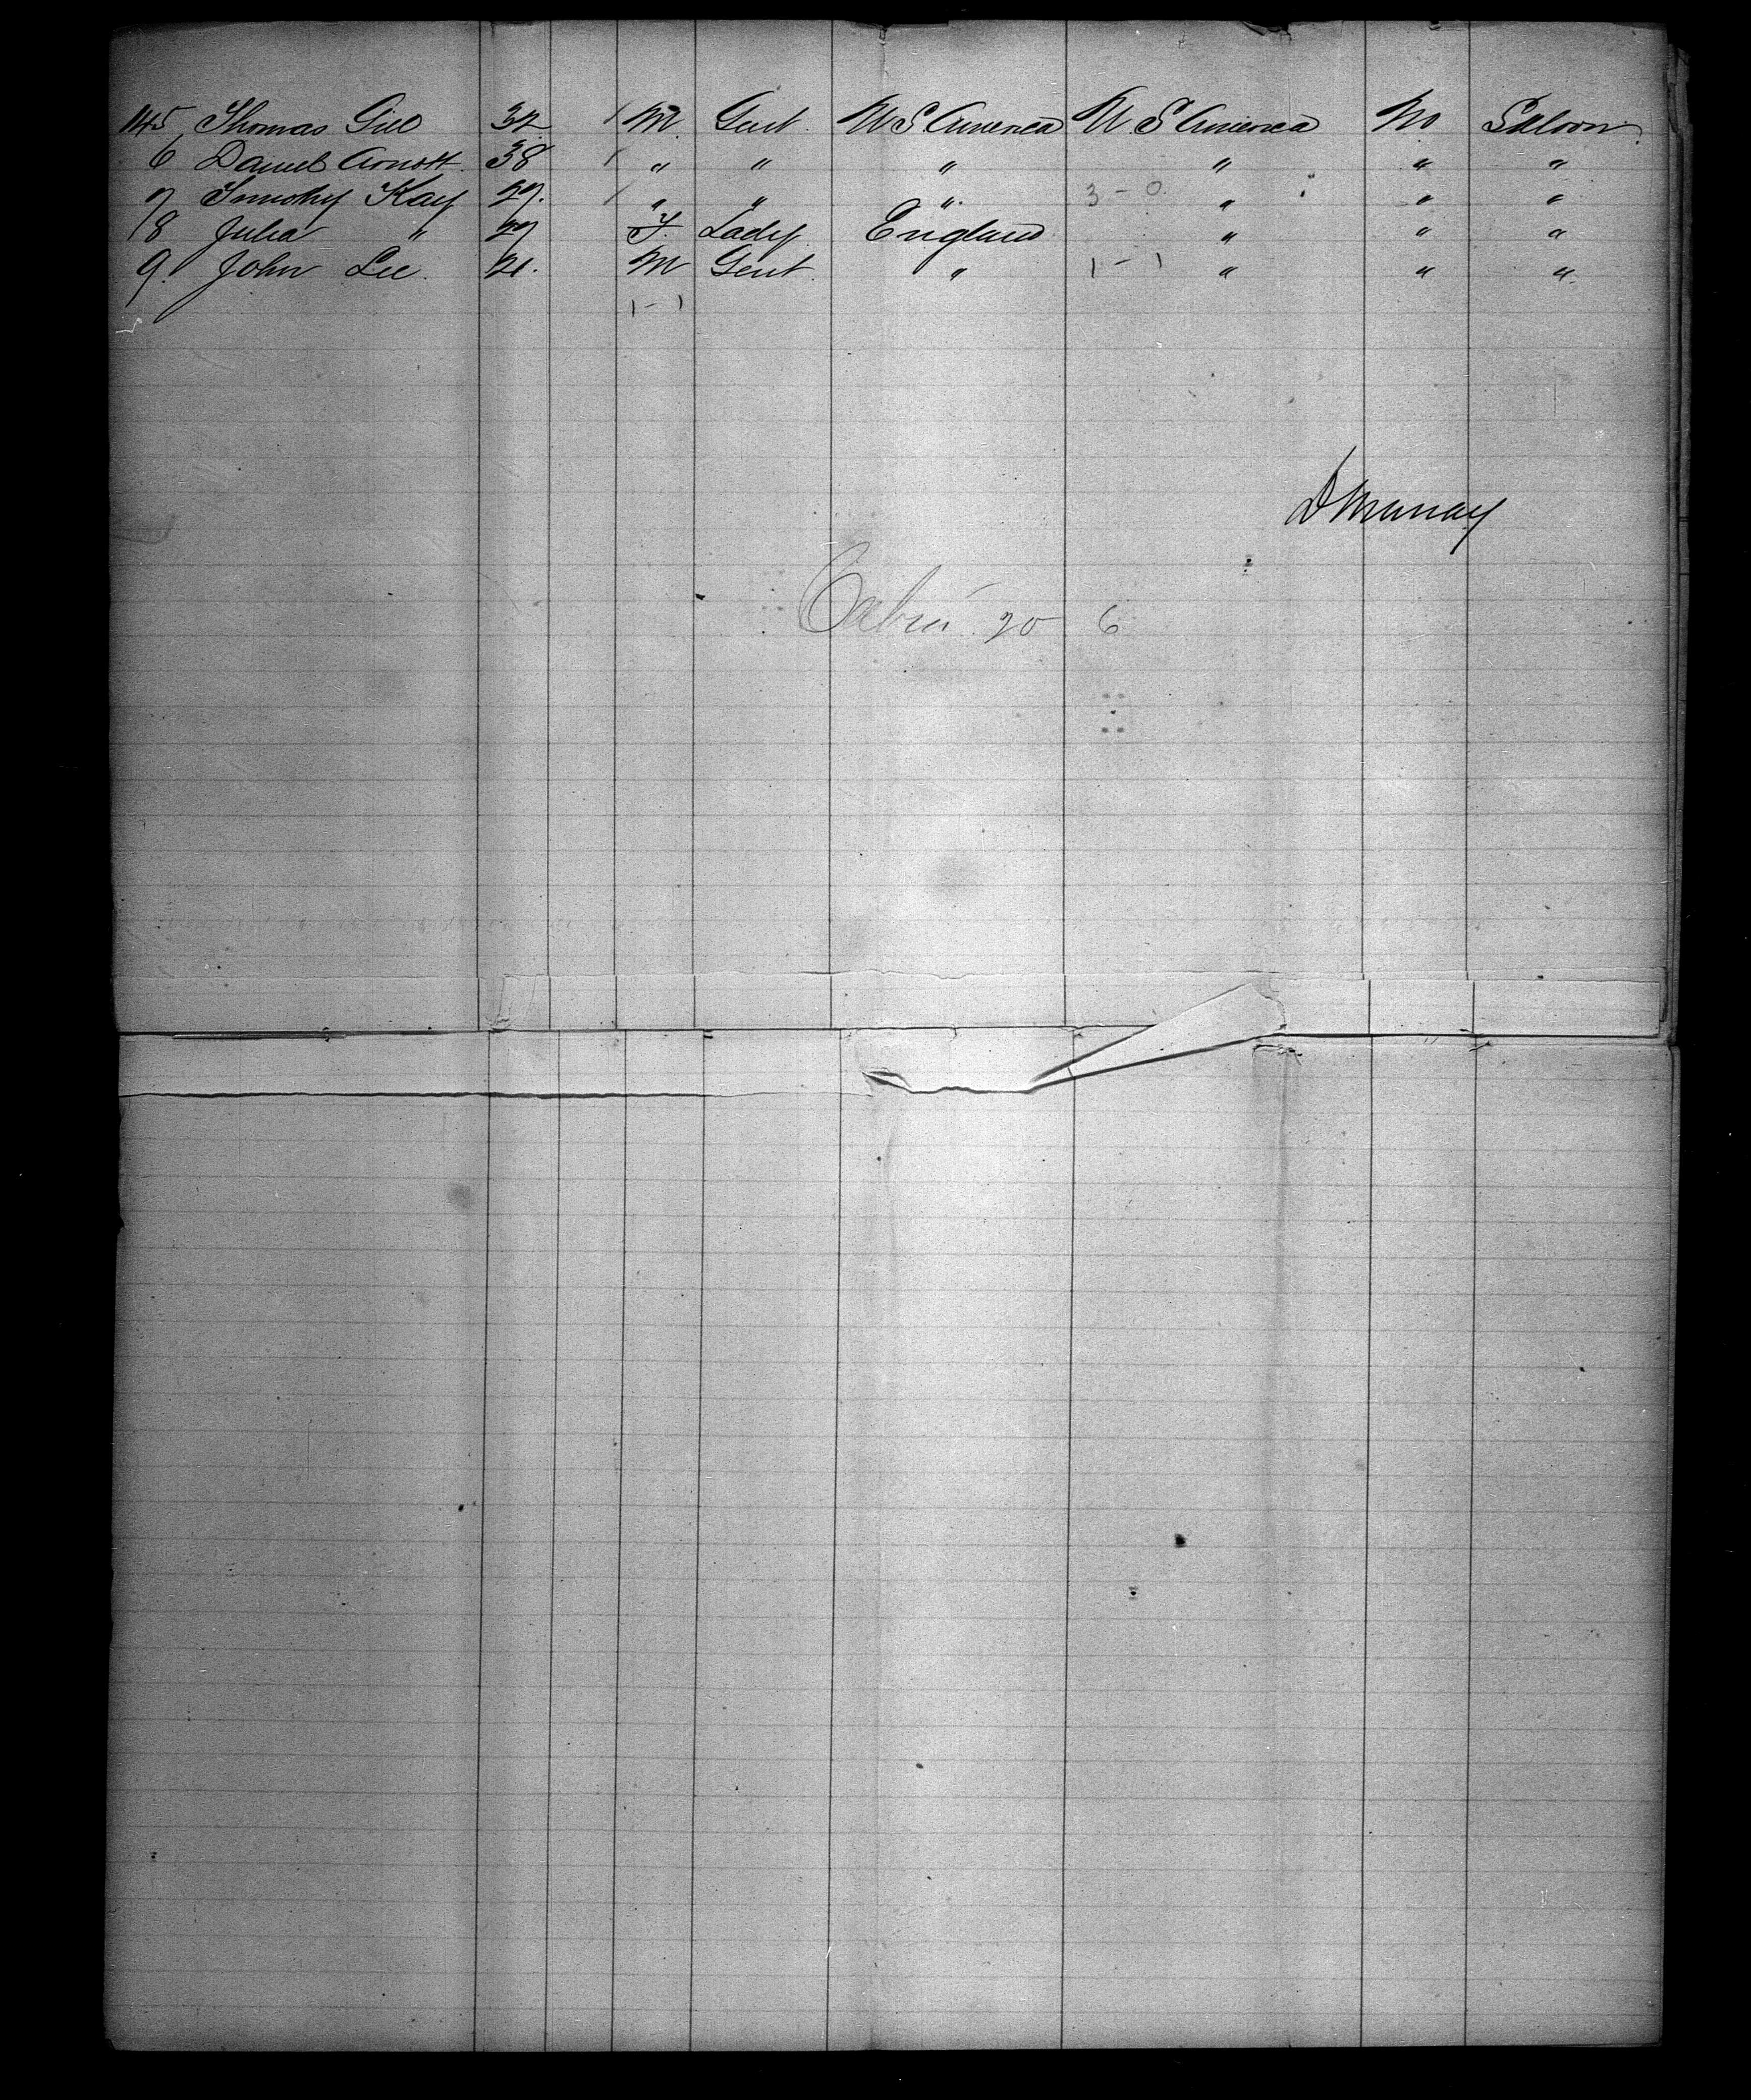 145 Thomas Gill 32 1 M. Gent. U S America U S America No Saloon
6 Daniel Arnott 38 1 " " " " " "
7 Timothy Kay 29. 1 " " " 3 - 0 " " "
18 Julia " 29 F. Lady England " " "
9. John Lee. 21. M Gent. " 1 - 1 " " "
1 - 1
D Murray
Cabin 20 6